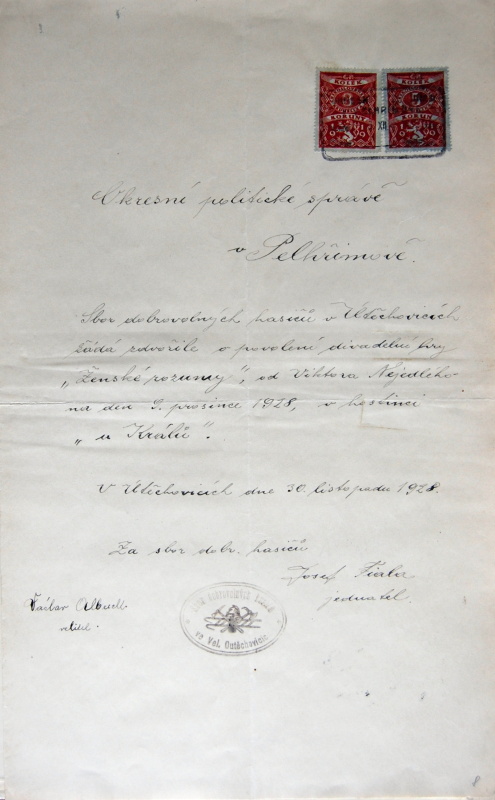 KOLEK KOLEK
3 5
KORUNY KORUN
XII
Okresné politické správě
v Pelhřimově.
Sbor dobrovolných hasičů v Útěchovicích
žádá zdvořile o povolení divadelní hry
„Ženské rozumy", od Viktora Nejedlého
na den 9. prosince 1928, v hostinci
„u Králů".
V Útěchovicích dne 30. listopadu 1928.
Za sbor dobr. hasičů
Josef Fiala
jednatel
velitel
Sbor dobrovolných hasičů
ve Vel. Outěchovicích
8